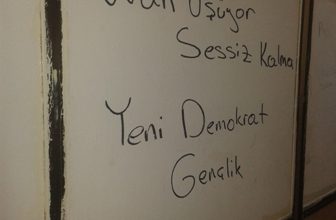 Van Üşüyor
Sessiz Kalma
Yeni Demokrat
Gençlik